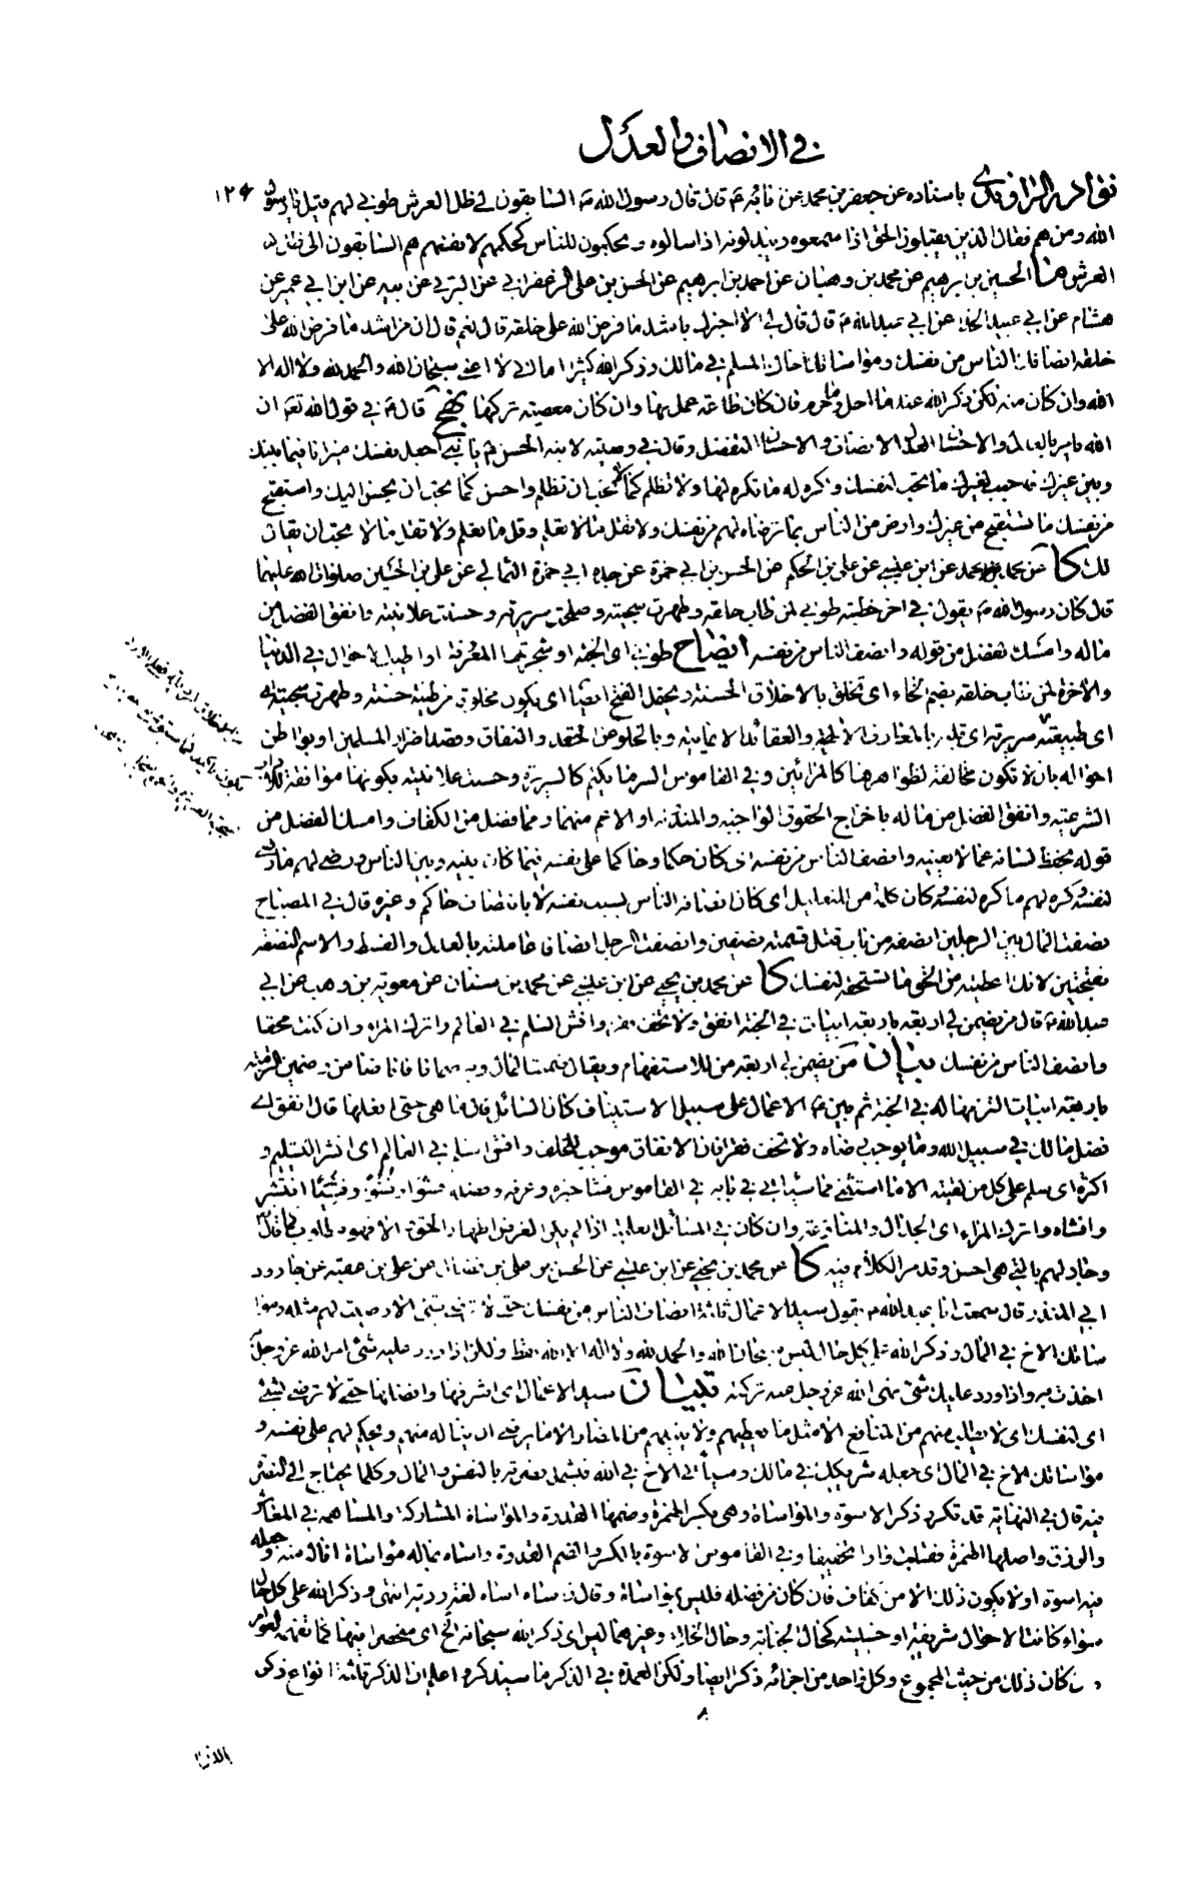 في الانصاف والعدل
١٢۴
نوادر الراوندي باسناده عن جعفر بن محمد عن ابائه ع قال قال رسول الله ص السابقون الى ظل العرش طوبى لهم قيل يا رسول
الله ومن هم فقال الذين يقبلون الحق اذا سمعوه ويبذلونه اذا سالوه ويحكمون للناس كحكمهم لانفسهم هم السابقون الى ظل
العرش الحسين بن ابرهيم عن محمد بن وهبان عن احمد بن ابرهيم عن الحسن بن علي الزعفراني عن البرقي عن ابيه عن ابن ابي عمير عن
هشام عن ابي عبيدة الحذاء عن ابي عبد الله ع قال قال لي الا اخبرك باشد ما فرض الله على خلقه قال نعم قال ان من اشد ما فرض الله على
خلقه انصافك الناس من نفسك ومواساتك اخاك المسلم في مالك وذكر الله كثيرا اما اني لا اعني سبحان الله والحمد لله ولا اله الا
الله وان كان منه لكن ذكر الله عند ما احل وحرم فان كان طاعة عمل بها وان كان معصية تركها نهج قال ع في قول الله تعه ان
الله يامر بالعدل والاحسان العدل الانصاف والاحسان التفضل وقال في وصيته لابنه الحسن ع يا بني اجعل نفسك ميزانا فيما بينك
وبين غيرك فاحبب لغيرك ما تحب لنفسك واكره له ما تكره لها ولا تظلم كما لا تحب ان تظلم واحسن كما تحب ان يحسن اليك واستقبح
من نفسك ما تستقبح من غيرك وارض من الناس بما ترضاه لهم من نفسك ولا تقل ما لا تعلم وقل ما تعلم ولا تقل ما لا تحب ان يقال
لك كا عن محمد عن ابن عيسى عن علي بن الحكم عن الحسن بن ابي حمزة عن جده ابي حمزة الثمالي عن علي بن الحسين صلوات الله عليهما
قال كان رسول الله ص يقول في اخر خطبته طوبى لمن طاب خلقه وطهرت سجيته وصلحت سريرته وحسنت علانيته وانفق الفضل من
ماله وامسك الفضل من قوله وانصف الناس من نفسه ايضاح طوبى اي الجنة او شجرتها المعرفة او اطيب الاحوال في الدنيا
والاخرة لمن طاب خلقه بضم الخاء اي تخلق بالاخلاق الحسنة ويحتمل الفتح ايضا اي يكون مخلوقا من طينة حسنة وطهرت سجيته اي
اي طبيعته سريرته اي قلبه بالمعارف الالهية والعقائد الايمانية وبالخلو عن الحقد والنفاق وقصد اضرار المسلمين او بواطن
احواله بان لا تكون مخالفة لظواهرها كالمرائين وفي القاموس السر ما يكتم كالسريرة وحسنت علانيته بكونها موافقة للاداب
الشرعية وانفق الفضل من ماله باخراج الحقوق الواجبة والمندوبة او الاعم منهما ومما فضل من الكفاف وامسك الفضل من
قوله بحفظ لسانه عما لا يعنيه وانصف الناس من نفسه اي كان حكما وحاكما على نفسه فيما كان بينه وبين الناس ورضي لهم ما رضي
لنفسه وكره لهم ما كره لنفسه وكان كلمة من للتعليل اي كان انصافه الناس بسبب نفسه لا بانتصاف حاكم وغيره قال في المصباح
نصفت المال بين الرجلين انصفه من باب قتل قسمته نصفين وانصفت الرجل انصافا عاملته بالعدل والقسط والاسم النصفة
بفتحتين لانك اعطيته من الحق ما تستحقه لنفسك كا عن محمد بن يحيى عن ابن عيسى عن محمد بن سنان عن معوية بن وهب عن ابي
عبد الله ع قال من يضمن لي اربعة باربعة ابيات في الجنة انفق ولا تخف فقرا وافش السلم في العالم واترك المراء وان كنت محقا
وانصف الناس من نفسك بيان من يضمن لي اربعة من للاستفهام ويقال ضمنت المال وبه ضمانا فانا ضامن وضمين التزمته
باربعة ابيات التزمها له في الجنة ثم بين ع الاعمال على سبيل الاستيناف كان السائل قال ما هي حتى افعلها قال انفق اي
فضل مالك في سبيل الله وما يوجب رضاه ولا تخف فقرا فان الانفاق موجب للخلف وافش السلم في العالم اي انشر التسليم و
اكثره اي سلم على كل من لقيته الا ما استثني مما سياتي في بابه في القاموس فشا خبره وعرفه وفضله فشوا وفشوا وفشيا انتشر
وافشاه واترك المراء اي الجدال والمنازعة وان كان في المسائل العلمية اذا لم يكن الغرض اظهار الحق والا فهو مطلوب كما قال
وجادلهم بالتي هي احسن وقد مر الكلام فيه كا عن محمد بن يحيى عن ابن عيسى عن الحسن بن علي بن فضال عن علي بن عقبة عن جارود
ابي المنذر قال سمعت ابا عبد الله ع يقول سيد الاعمال ثلثة انصاف الناس من نفسك حتى لا ترضى بشئ الا رضيت لهم مثله ومواسا
ساتك الاخ في المال وذكر الله على كل حال ليس سبحان الله والحمد لله ولا اله الا الله فقط ولكن اذا ورد عليك شئ امر الله عز وجل
اخذت به واذا ورد عليك شئ نهى الله عز وجل عنه تركته تبيان سيد الاعمال اي اشرفها وافضلها حتى لا ترضى بشئ
اي لنفسك اي لا يطلب منهم من المنافع الا مثل ما يعطيهم ولا ينيلهم من المضار الا ما يرضى ان يناله منهم ويحكم لهم على نفسه و
مواساتك الاخ في المال اي جعله شريكك في مالك وسياتي الاخ في الله فيشمل نصرته بالنفس والمال وكلما يحتاج الى النصرة
فيه قال في النهاية قد تكرر ذكر الاسوة والمواساة وهي بكسر الهمزة وضمها القدوة والمواساة المشاركة والمساهمة في المعاش
والرزق واصلها الهمزة فقلبت واوا تخفيفا وفي القاموس الاسوة بالكسر والضم القدوة واساه بماله مواساة اناله منه وجعله
فيه اسوة او لا يكون ذلك الا من كفاف فان كان من فضلة فليس بمواساة وقال اساه لغة ردية انتهى وذكر الله على كل حال
سواء كانت الاحوال شريفة او خسيسة كحال الجنابة وحال الخلاء وغيرهما ليس اي ذكر الله سبحانه الخ اي منحصرا فيها كما تفهمه العوام
كان ذلك من حيث المجموع وكل واحد من اجزائه ذكرا ايضا ولكن العمدة في الذكر ما سيذكر واعلم ان الذكر ثلثة انواع ذكر
٨